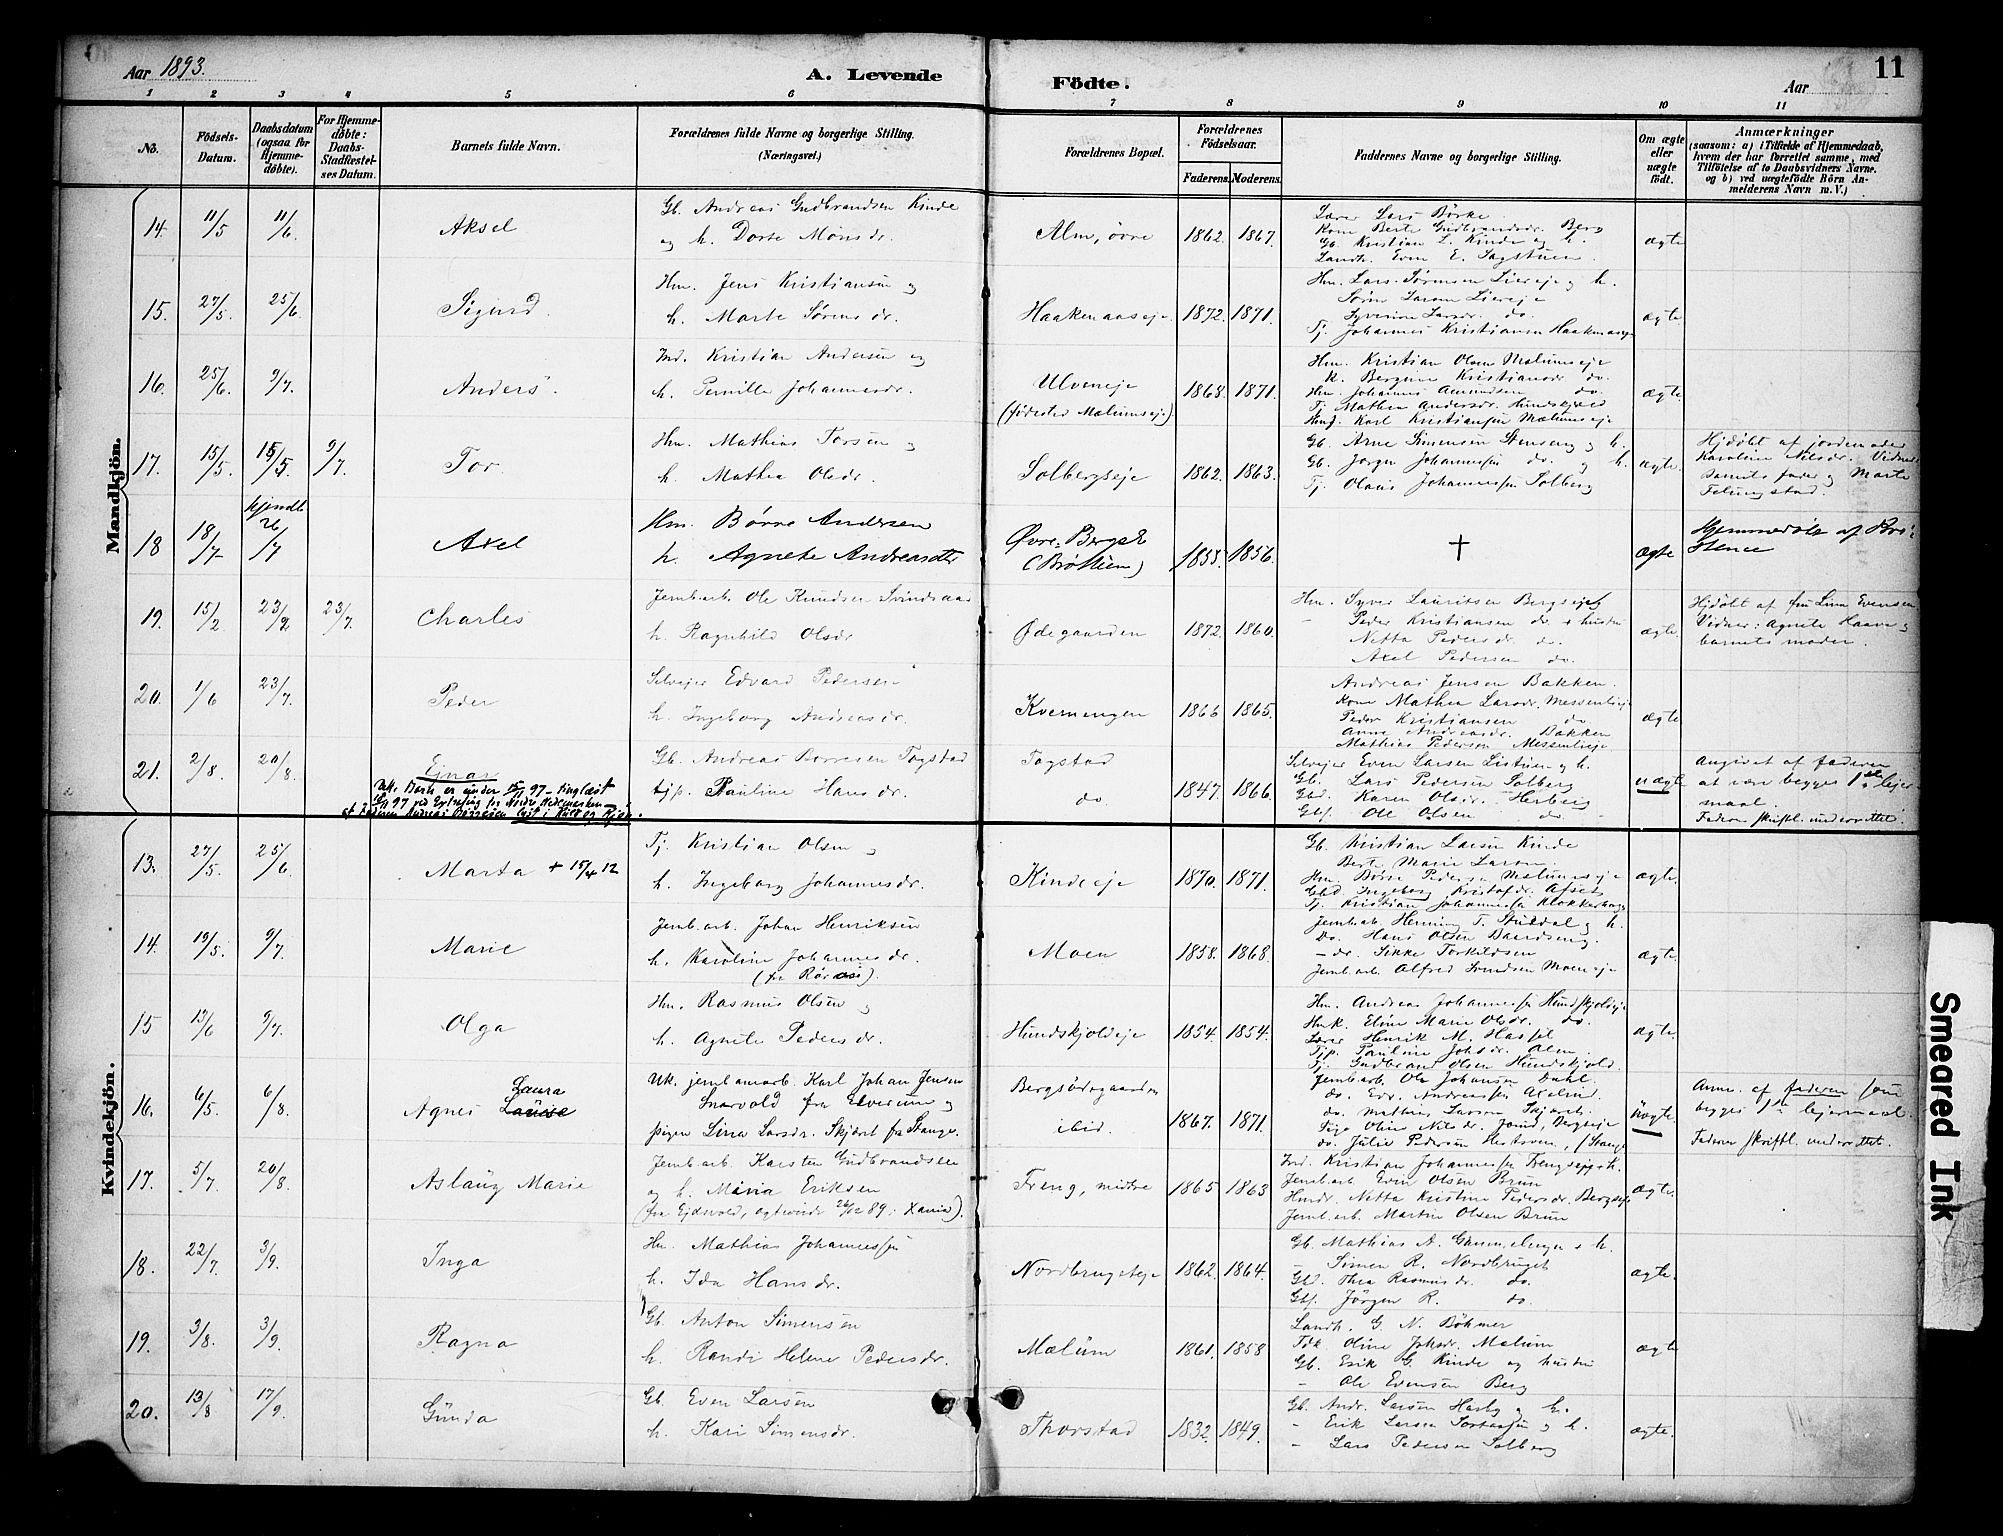 Aar 1893.
A. Levende
Födte.
Aar
11
1 2 3 4 5 6 7 8 9 10 11
No.
Födsels-Datum.
Daabsdatum (ogsaa for Hjemmedöbte).
For Hjemmedöbte: Daabs-Stadfestelses Datum.
Barnets fulde Navn.
Forældrenes fulde Navne og borgerlige Stilling.
(Næringsvei.)
Forældrenes Bopæl.
Forældrenes Födselsaar.
Faderens. Moderens.
Faddernes Navne og borgerlige Stilling.
Om ægte eller uægte födt.
Anmærkninger
(saasom: a) i Tilfælde af Hjemmedaab, hvem der har forrettet samme, med Tilföielse af to Daabsvidners Navne. og b) ved uægtefödte Börn Anmelderens Navn m. V.)
Mandkjön.
14. 11/5 11/6 Aksel
Gb. Andreas Gudbrandsen Kinde
og h. Dorte Mønsdr.
Alm, øvre 1862. 1867.
Lærer Lars Börke.
Kone Berte Gudbrandsdr. Berg
Gb. Kristian L. Kinde og h.
Landh. Even E. Sagstuen
ægte
15. 27/5. 25/6 Sigurd.
Hm. Jens Kristiansen og
h. Marte Sørensdr.
Haakenaaseje. 1872. 1871.
Hm. Lars Sørensen Liereje og h.
Søren Larsen Liereje
Larsdr. do.
Tj. Johannes Kristiansen
ægte
16. 25/6. 9/7. Anders.
Ind. Kristian Andersen og
h. Pernille Johannesdr.
Ulveneje
(fødested Mælumseje)
1868. 1871.
Hm. Kristian Olsen Mælumseje
K. Bergine Kristiansdr. do.
Hm. Johannes Amundsen do.
Tj. Mathea Andersdr. Hundskjold
Karl Kristiansen Mælumseje
ægte
17. 15/5. 15/5. 9/7. Tor.
Hm. Mathias Torsen og
h. Mathea Olsdr.
Solbergseje 1862. 1863.
Gb. Arne Simensen Stenseng og h.
Gb. Jørgen Johannessen do. og h.
Tj. Olaus Johannessen Solberg
ægte.
Hjdøbt af jordemoder
Karoline Nilsdr. Vidner
barnets fader og Marte
18 18/7 hjemdt 26/7 Axel
Hm. Börre Andersen
h. Agnete Andreasdtr
Øvre-Bergse
(Bröttum)
1855. 1856.
†
ægte
Hjemmedøbt af
19. 15/2 23/2 23/7. Charles
Jernb.arb. Ole Knudsen Svindsaas
h. Ragnhild Olsdr
Ødegaarden 1872. 1860.
Hm. Syver Lauritsen Bergseje
- Peder Kristiansen do. & hustru
Netta Pedersdr. do.
Axel Pedersen do.
ægte.
Hjdøbt af fru Lina Evensen
Vidner: Agnete Haave og
barnets moder.
20. 1/6 23/7. Peder
Selvejer Edvard Pedersen
h. Ingeborg Andreasdr.
Kverningen 1866 1865.
Andreas Jensen Bakken.
Kone Mathea Larsdr. Messenlieje
Peder Kristiansen do.
Anne Andreasdr. Bakken
Mathias Pedersen Messenlieje
ægte
21. 2/8. 20/8. Ejnar
Gb. Andreas Borresen Togstad
tjp. Pauline Hansdr.
Togstad
do.
1847. 1866.
Selvejer Even Larsen Listuen og h.
Gb. Lars Pedersen Solberg
Gbd. Karen Olsdr. Herberg
Gbs. Ole Olsen do.
uægte
Angivet af faderen
at være begges 1ste lejermaal.
Faderen skriftl. underrettet.
Uk. Barn er under 97 - tinglæst
97 ved Extrating for Nordre Hedemarken -
af Faderen Andreas Borresen lyst i Kuld og Kjön.
Kvindekjön.
13. 27/5. 25/6 Marta + 15/4 12
Tj. Kristian Olsen og
h. Ingeborg Johannesdr.
Kindeeje 1870. 1871.
Gb. Kristian Larsen Kinde
Berte Marie Larsen.
Hm. Børre Pedersen Mælumseje
Gbd. Ingeborg Kristofdr.
Tj. Kristian Johannessen
ægte.
14. 19/5. 9/7. Marie
Jernb.arb. Johan Henriksen
h. Karoline Johannesdr.
(fra Røraas).
Moen 1858. 1868.
Jernb.arb. Henning T. Stuedal og h.
Do. Hans Olsen
- do. Sikke Torkildsen
Jernb.arb. Alfred Svendsen Moeneje
ægte
15 13/6 9/7. Olga
Hm. Rasmus Olsen og
h. Agnete Pedersdr.
Hundskjoldeje 1854. 1854.
Hm. Andreas Johannessen Hundskjoldeje
Hmk. Eline Marie Olsdr. do.
Lærer Henrik M. Hassel
Tjp. Pauline Johsdr. Alm
Tj. Gudbrand Olsen Hundskjold
ægte
16. 6/5. 6/8. Agnes Laura Lauise
Uk. jernbanearb. Karl Johan Jensen
Snarvold fra Elverum og
pigen Lina Larsdr. Skjæret fra Stange.
Bergsødegaarden
ibid.
1867. 1871.
Jernb.arb. Ole Johansen Dahl.
do. Edv. Andreassen Aralrud
do. Mathias Larsen Skjæret.
Pige Oline Nilsdr. Bergseje
do. Julie Pedersen (Stange
uægte
Anm. af faderen som
begges 1ste lejermaal.
Faderen skriftl. underrettet.
17. 5/7. 20/8. Aslaug Marie
Jernb.arb. Karsten Gudbrandsen
og h. Maria Eriksen
(fra Ejdsvold, ægteviede 26/12 89 i Xania).
Freng, midtre 1865 1863
Ind. Kristian Johannessen Frengseje & h.
Jernb.arb. Even Olsen Brun
Netta Kristine Pedersdr. Bergseje
Jernb.arb. Martin Olsen Brun
ægte.
18. 22/7. 3/9. Inga
Hm. Mathias Johannessen
h. Ida Hansdr.
Nordbrugeteje 1862. 1864.
Gb. Mathias A. & h.
- Simen R. Nordbruget
Gbd. Thea Rasmusdr. do.
Gbs. Jörgen R. do.
ægte.
19. 3/8. 3/9. Ragna
Gb. Anton Simensen
h. Randi Helene Pedersdr.
Mælum 1861. 1858
Landh. G. N. Böhmer
Fdk. Oline Johsdr. Mælum
Gb. Erik G. Kinde og hustru
- Ole Evensen Berg
ægte
20. 13/8 17/9. Gunda
Gb. Even Larsen
h. Kari Simensdr.
Thorstad 1832. 1849.
Gb. Andr. Larsen Harby og h.
- Erik Larsen og h.
- Lars Pedersen Solberg
ægte.
Smeared Ink